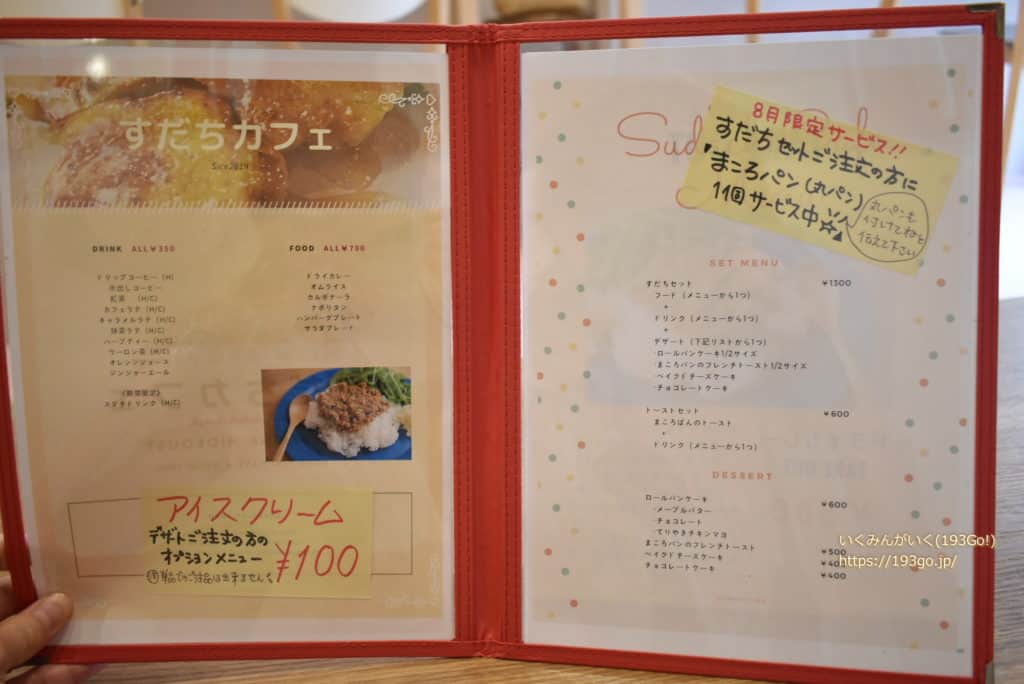 すだちカフェ
DRINK ALL¥350
ドリップコーヒー (H)
水出しコーヒー
紅茶 (H/C)
カフェラテ (H/C)
キャラメルラテ (H/C)
抹茶ラテ (H/C)
ハーブティー (H/C)
ウーロン茶 (H/C)
オレンジジュース
ジンジャーエール
《期間限定》
スダチドリンク (H/C)
FOOD ALL¥700
ドライカレー
オムライス
カルボナーラ
ナポリタン
ハンバーグプレート
サラダプレート
アイスクリーム
デザートご注文の方の
オプションメニュー
¥100
8月限定サービス!!
すだちセットご注文の方に
「まころパン(丸パン)
11回サービス中☆
丸パンも
付けてねと
伝えて下さい
SET MENU
すだちセット ¥1300
フード (メニューから1つ)
+
ドリンク (メニューから1つ)
+
デザート (下記リストから1つ)
・ロールパンケーキ1/2サイズ
・まころパンのフレンチトースト1/2サイズ
・ベイクドチーズケーキ
・チョコレートケーキ
トーストセット ¥600
まころぱんのトースト
+
ドリンク (メニューから1つ)
DESSERT
ロールパンケーキ ¥600
・メープルバター
・チョコレート
・てりやきチキンマヨ
まころパンのフレンチトースト ¥500
ベイクドチーズケーキ ¥400
チョコレートケーキ ¥400
いくみんがいく(193Go!)
https://193go.jp/